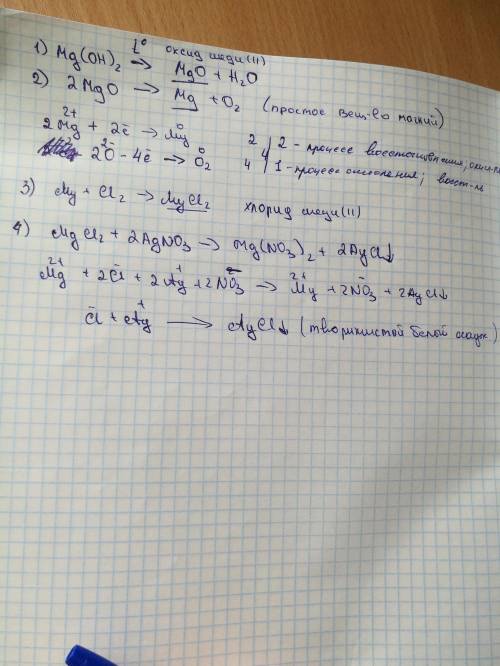 1) Mg(OH)₂ →t° MgO + H₂O оксид меди (II)
2) 2MgO → Mg + O₂ (простое вещ-во магний)
2Mg²⁺ + 2ē → Mg⁰ 2 | 4 | 2 - процесс восстановления;
2O²⁻ - 4ē → O₂⁰ 4 | 1 - процесс окисления; восст-ль
3) Mg + Cl₂ → MgCl₂ хлорид меди (II)
4) MgCl₂ + 2AgNO₃ → Mg(NO₃)₂ + 2AgCl↓
Mg²⁺ + 2Cl⁻ + 2Ag⁺ + 2NO₃⁻ → Mg²⁺ + 2NO₃⁻ + 2AgCl↓
Cl⁻ + Ag⁺ → AgCl↓ (творжистой белой осадк)